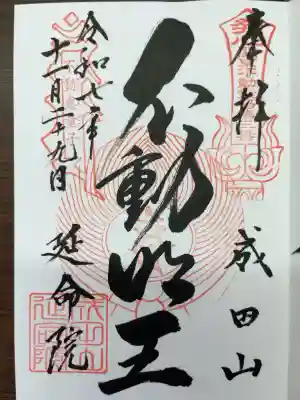 奉拝
成田山
不動明王
令和七年
十一月二十九日
延命院